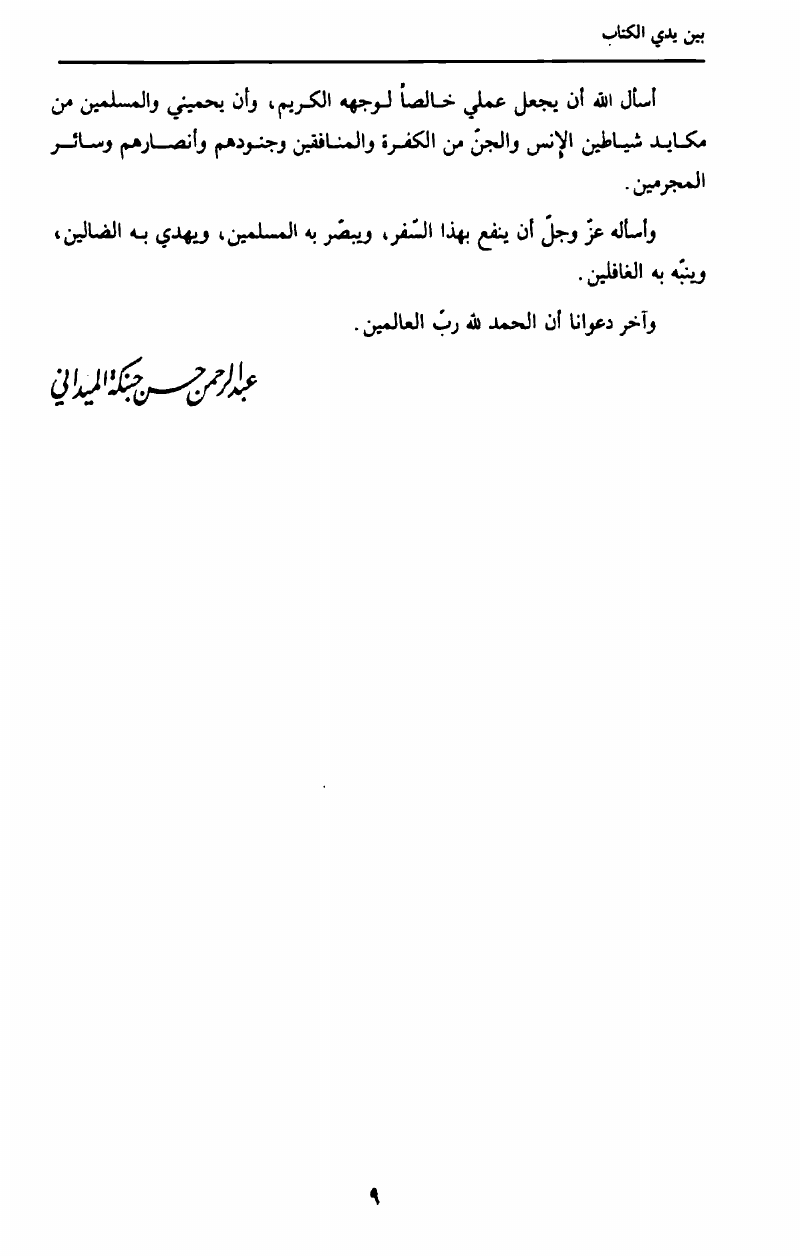 بين يدي الكتاب
أسأل الله أن يجعل عملي خالصاً لوجهه الكريم، وأن يحميني والمسلمين من
مكايد شياطين الإنس والجنّ من الكفرة والمنافقين وجنودهم وأنصارهم وسائر
المجرمين.
وأسأله عزّ وجلّ أن ينفع بهذا السِّفر، ويبصّر به المسلمين، ويهدي به الضالين،
وينبّه به الغافلين.
وآخر دعوانا أن الحمد لله ربّ العالمين.
عبد الرحمن حسن حبنكة الميداني
٩